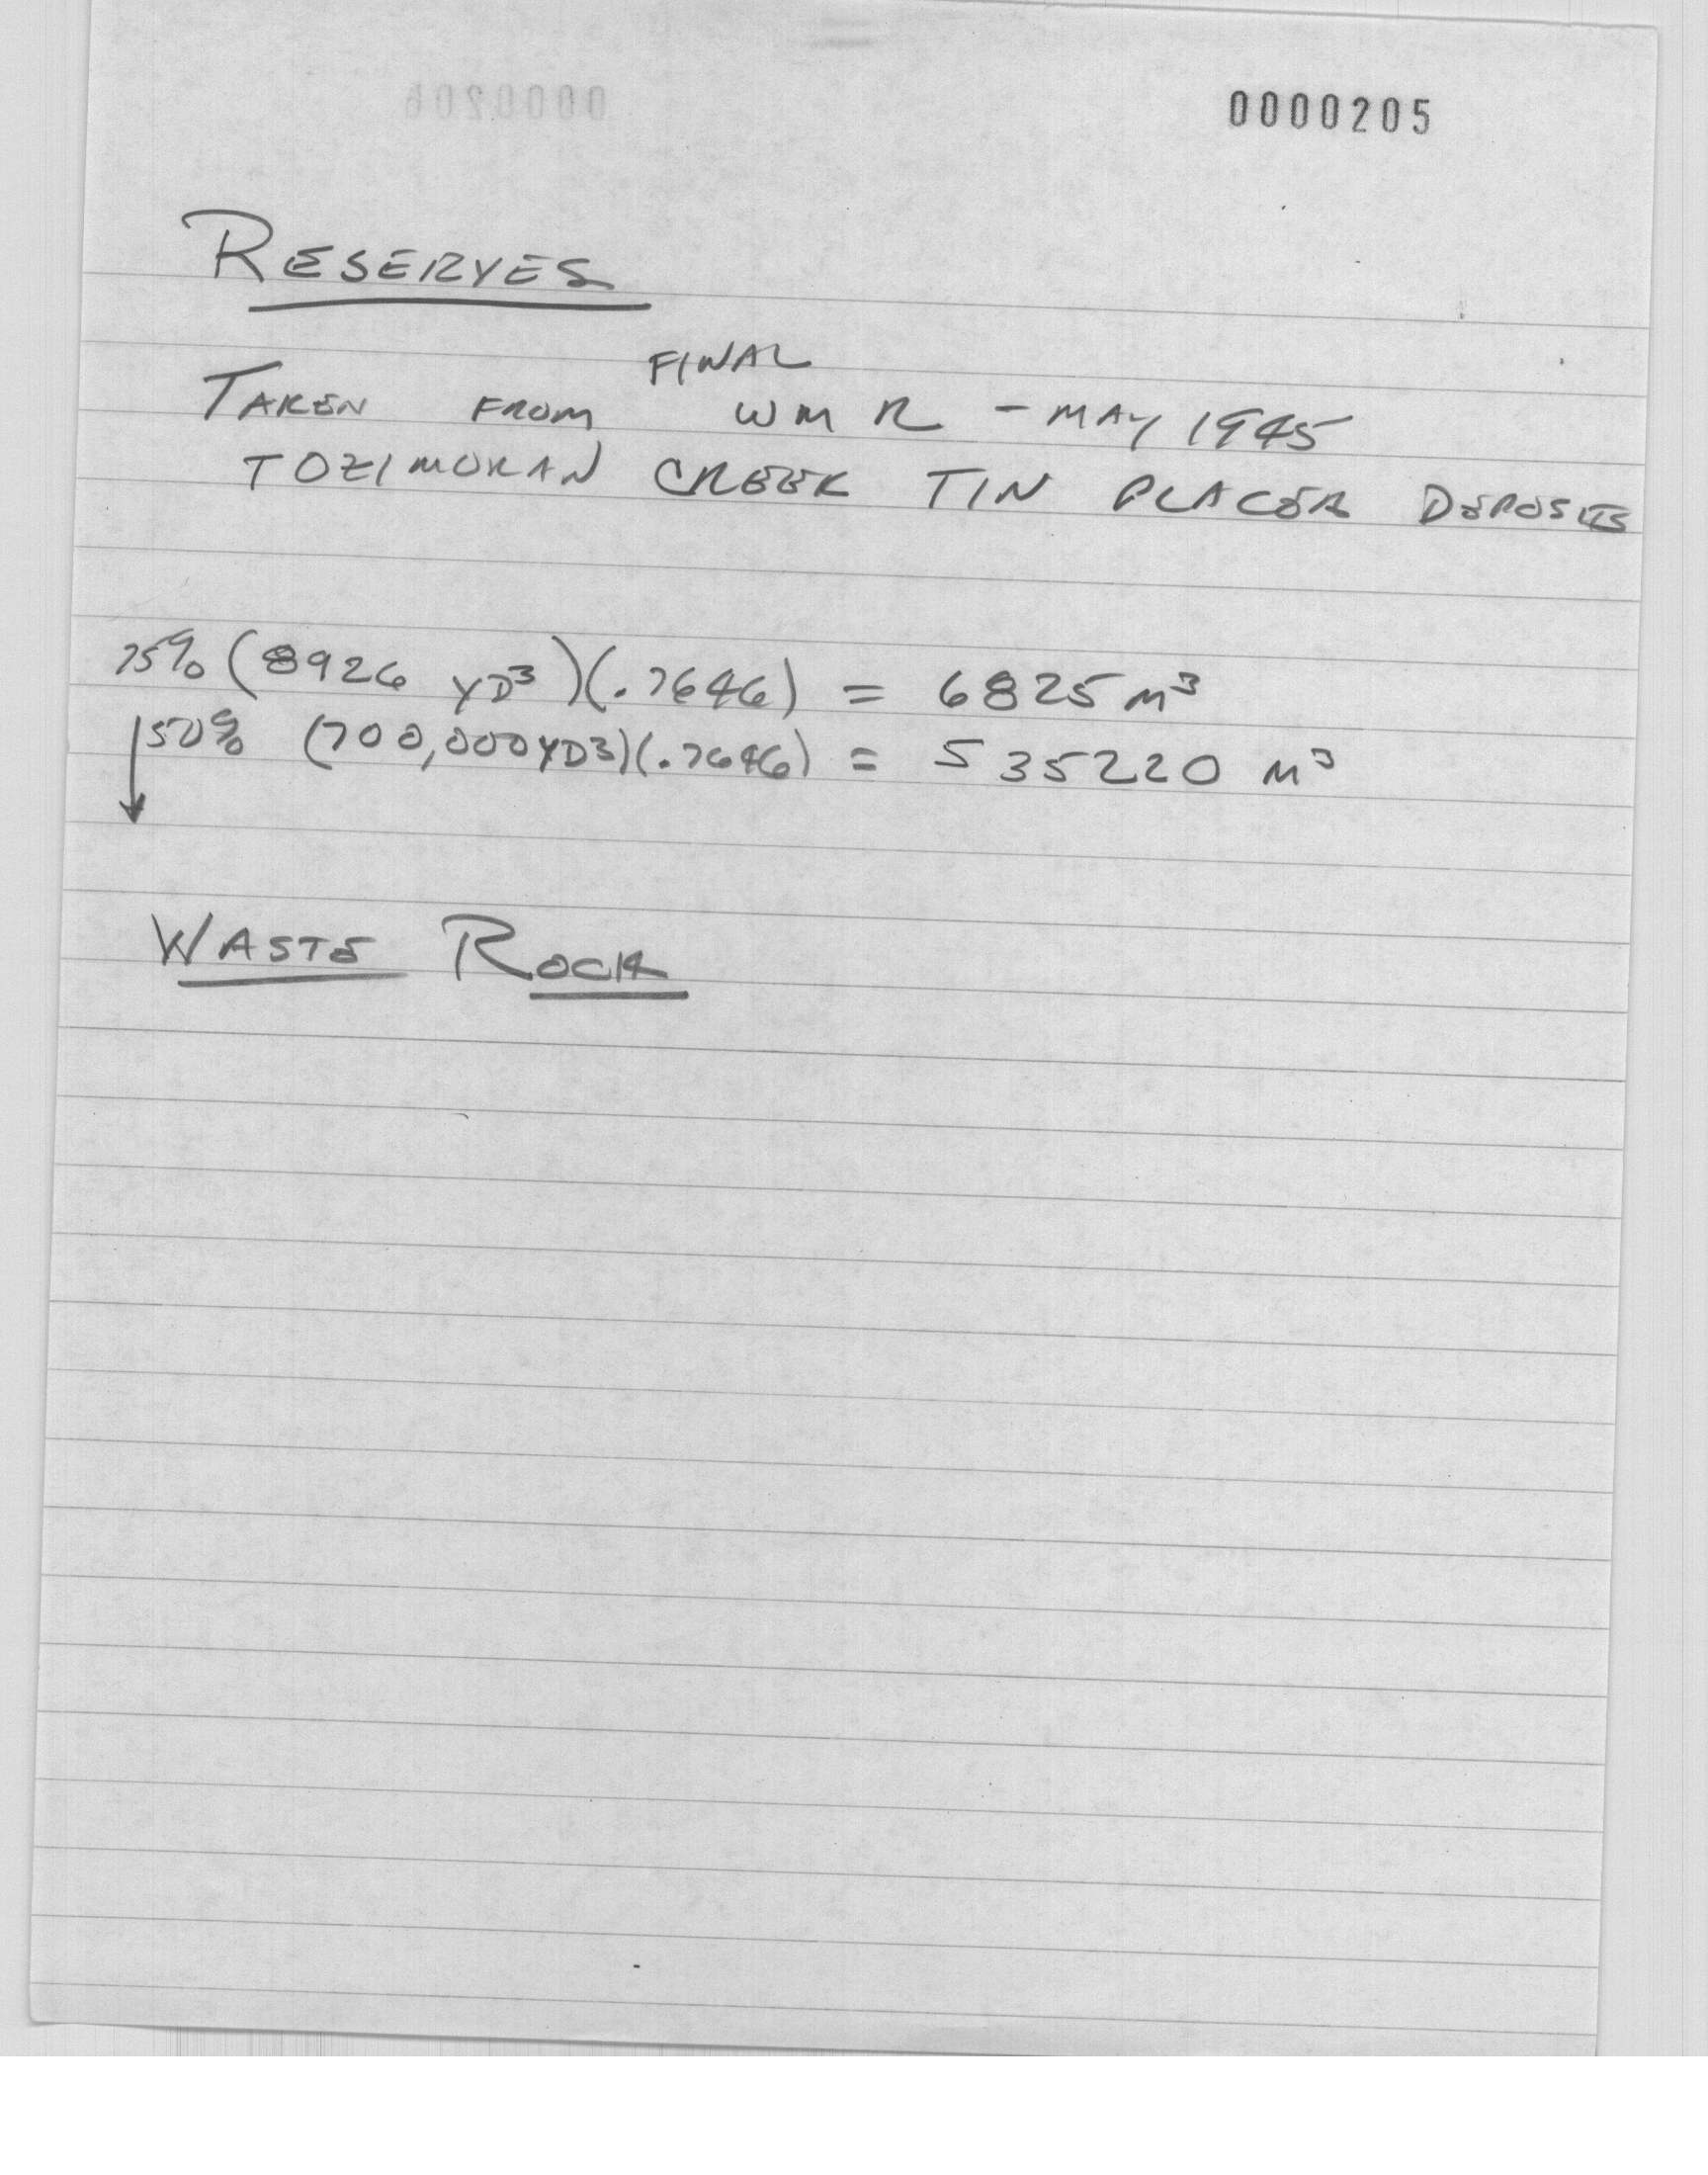 0000205
RESERVES
FINAL
TAKEN FROM WMR - MAY 1945
TOZIMORAN CREEK TIN PLACER DEPOSITS
75% (8926 YD³)(.7646) = 6825 M³
50% (700,000 YD3)(.7646) = 535220 M³
WASTE ROCK